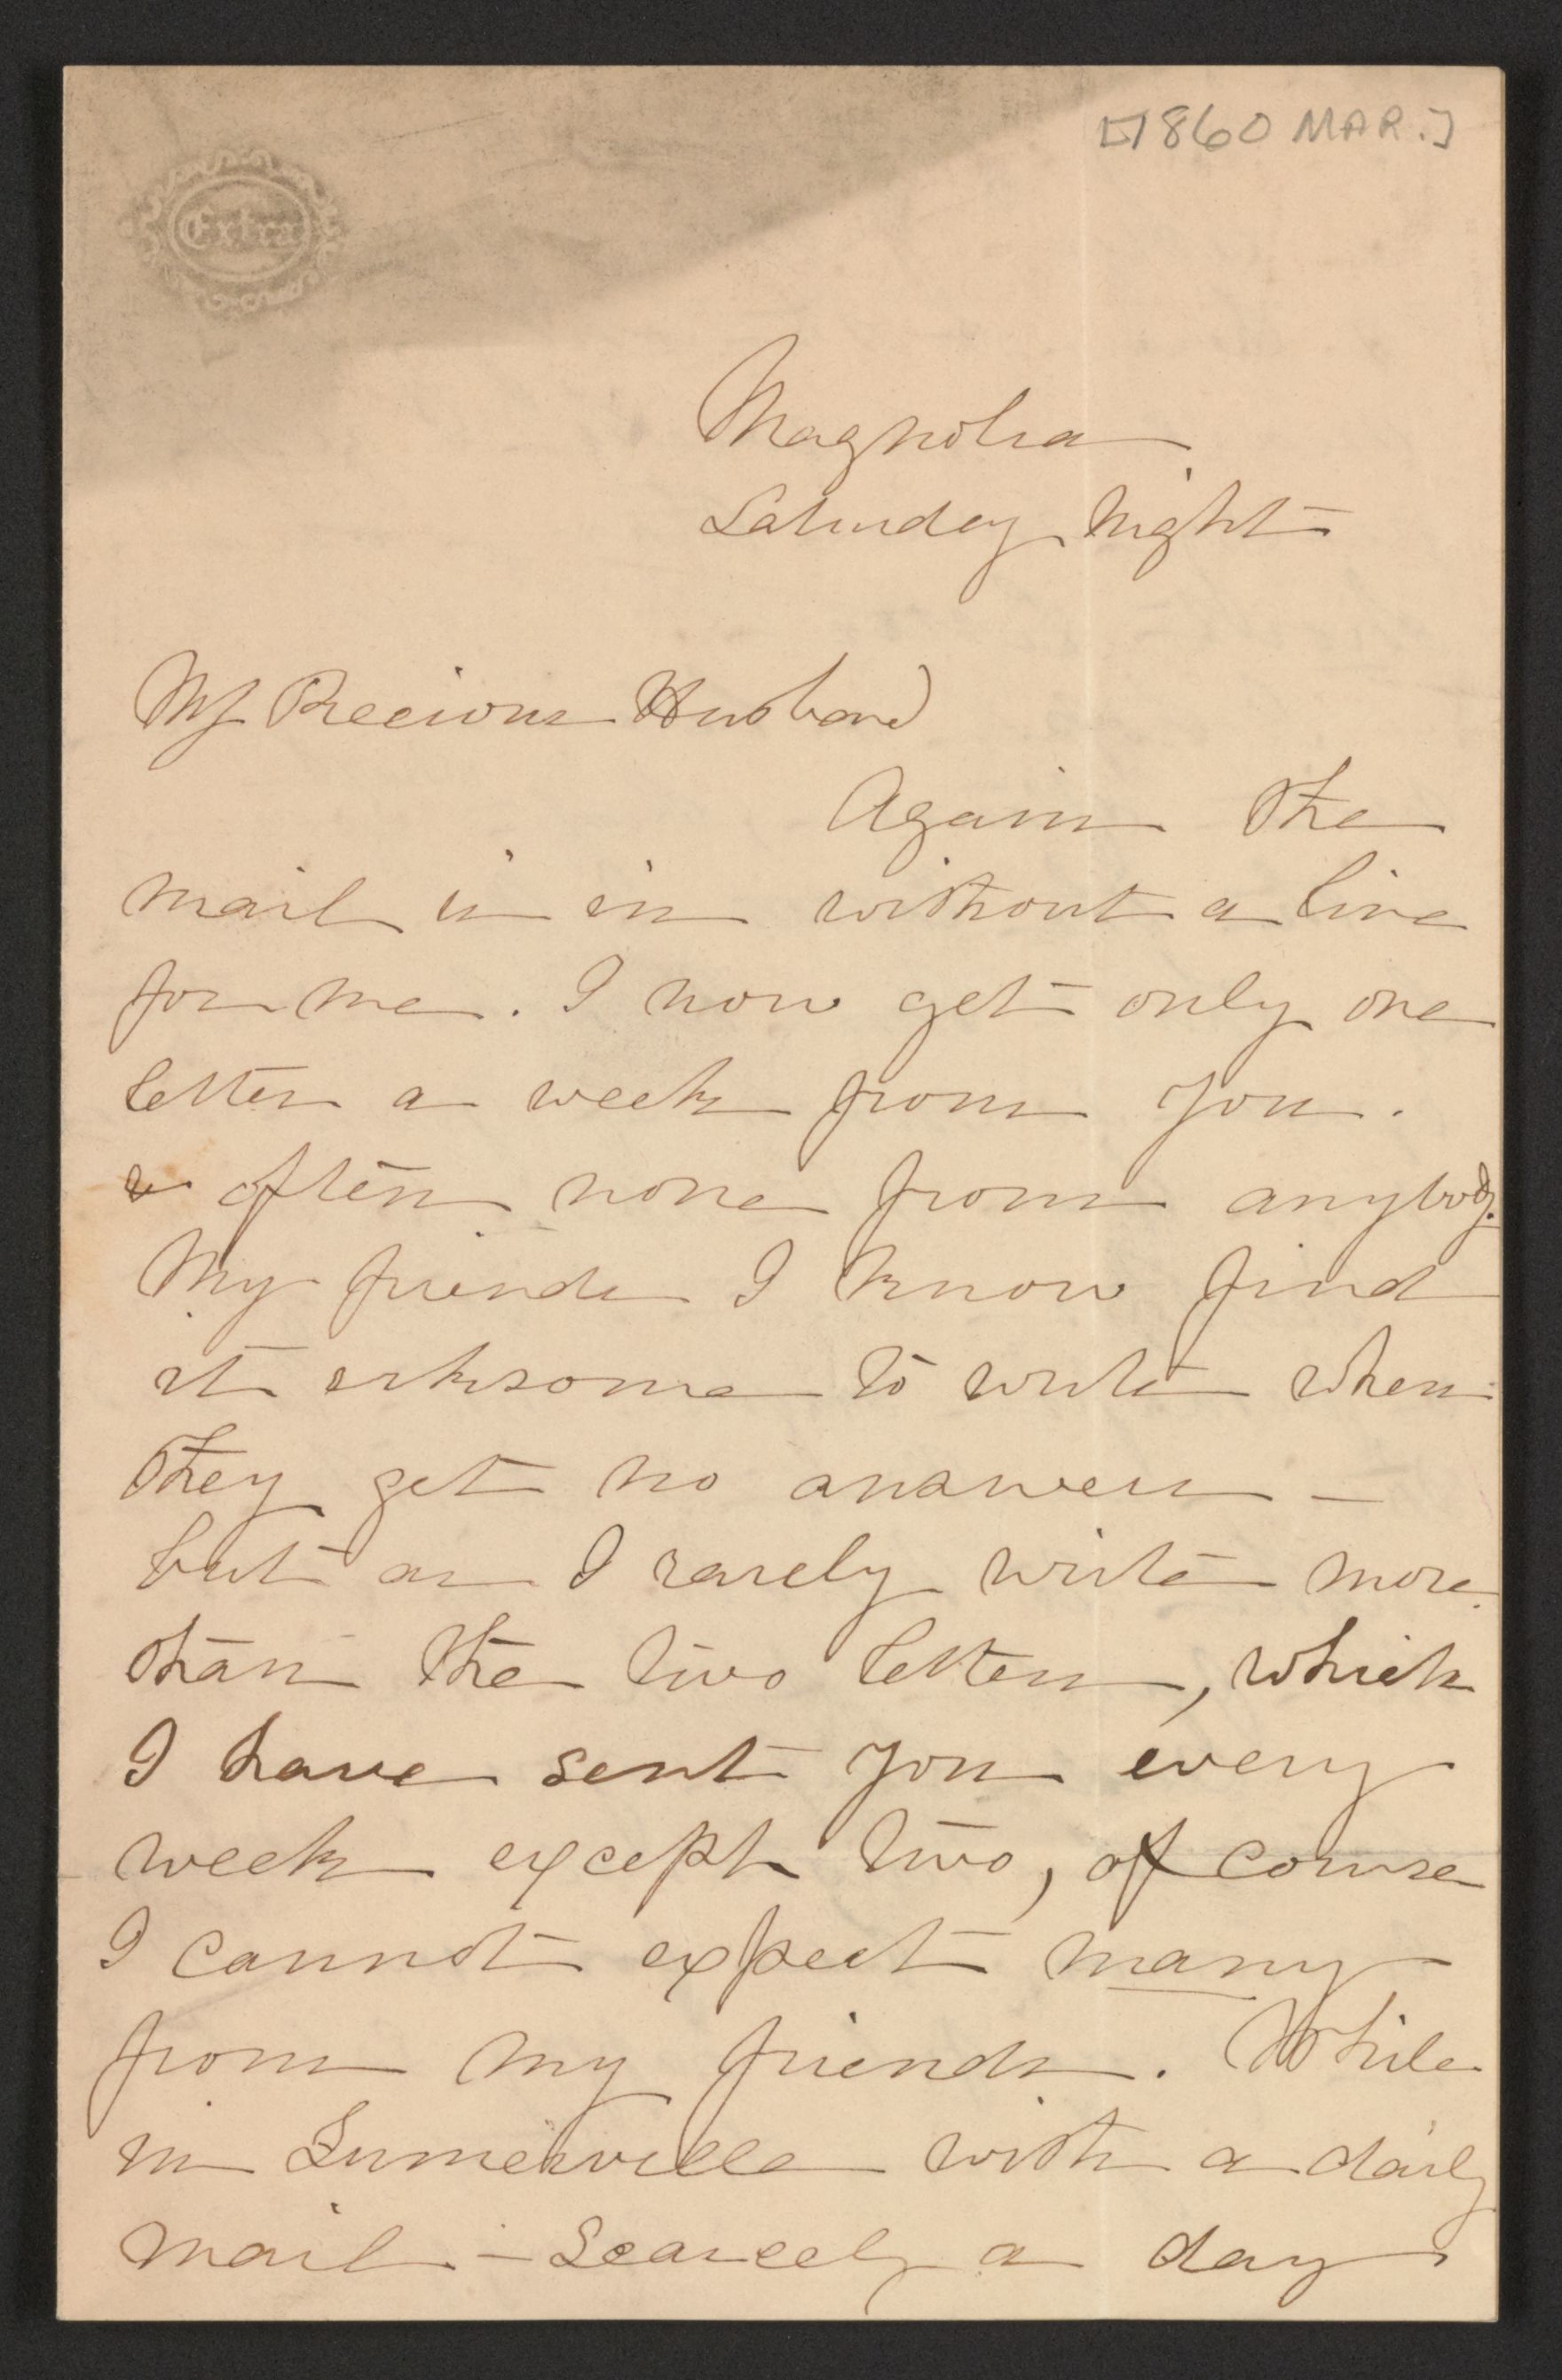 [1860 MAR.]
Extra
Magnolia
Saturday Night
My Precious Husband
Again the
mail is in without a line
for me. I now get only one
letter a week from you.
& often none from anybody.
My friends I know find
it irksome to write when
they get no answers -
but as I rarely write more
than the two letters, which
I have sent you every
week except two, of course
I cannot expect many
from my friends. While
in Sumerville with a daily
mail - Scarcely a day